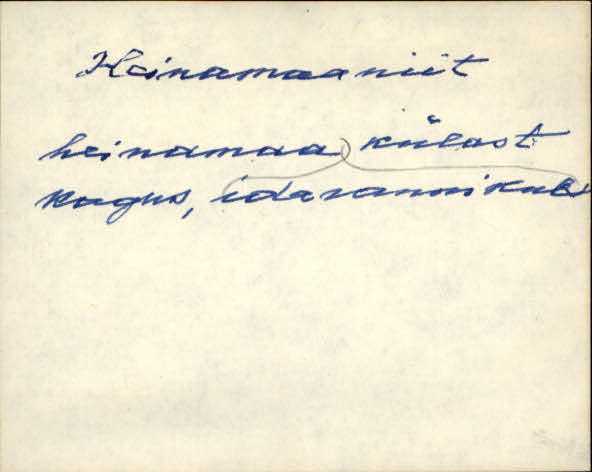 Heinamaaniit
heinamaa külast
kagus, idarannikul